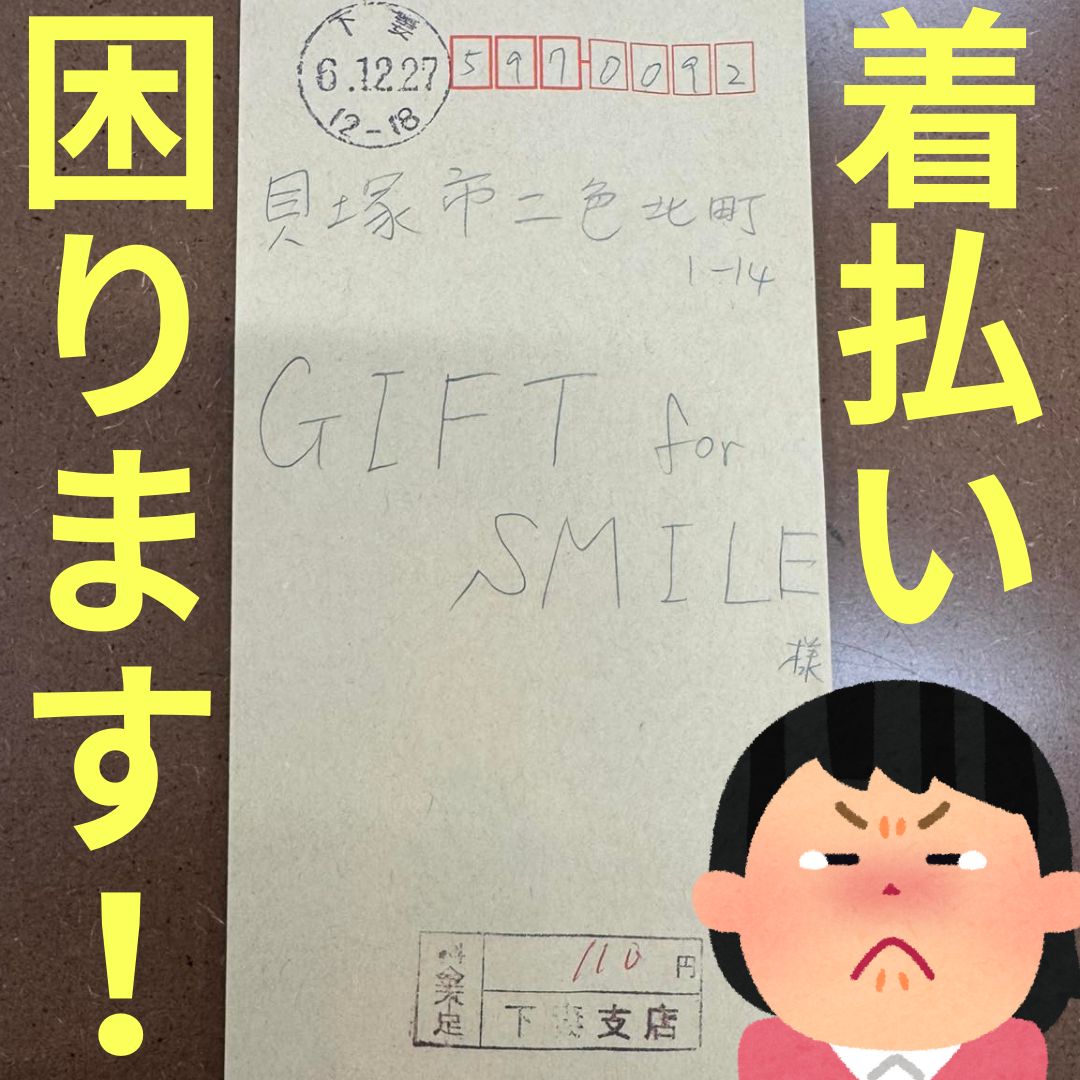 着払い
困ります!
下妻
6.12.27
12-18
597-0092
貝塚市二色北町
1-14
GIFT for
SMILE
様
料金不足
110円
下妻支店